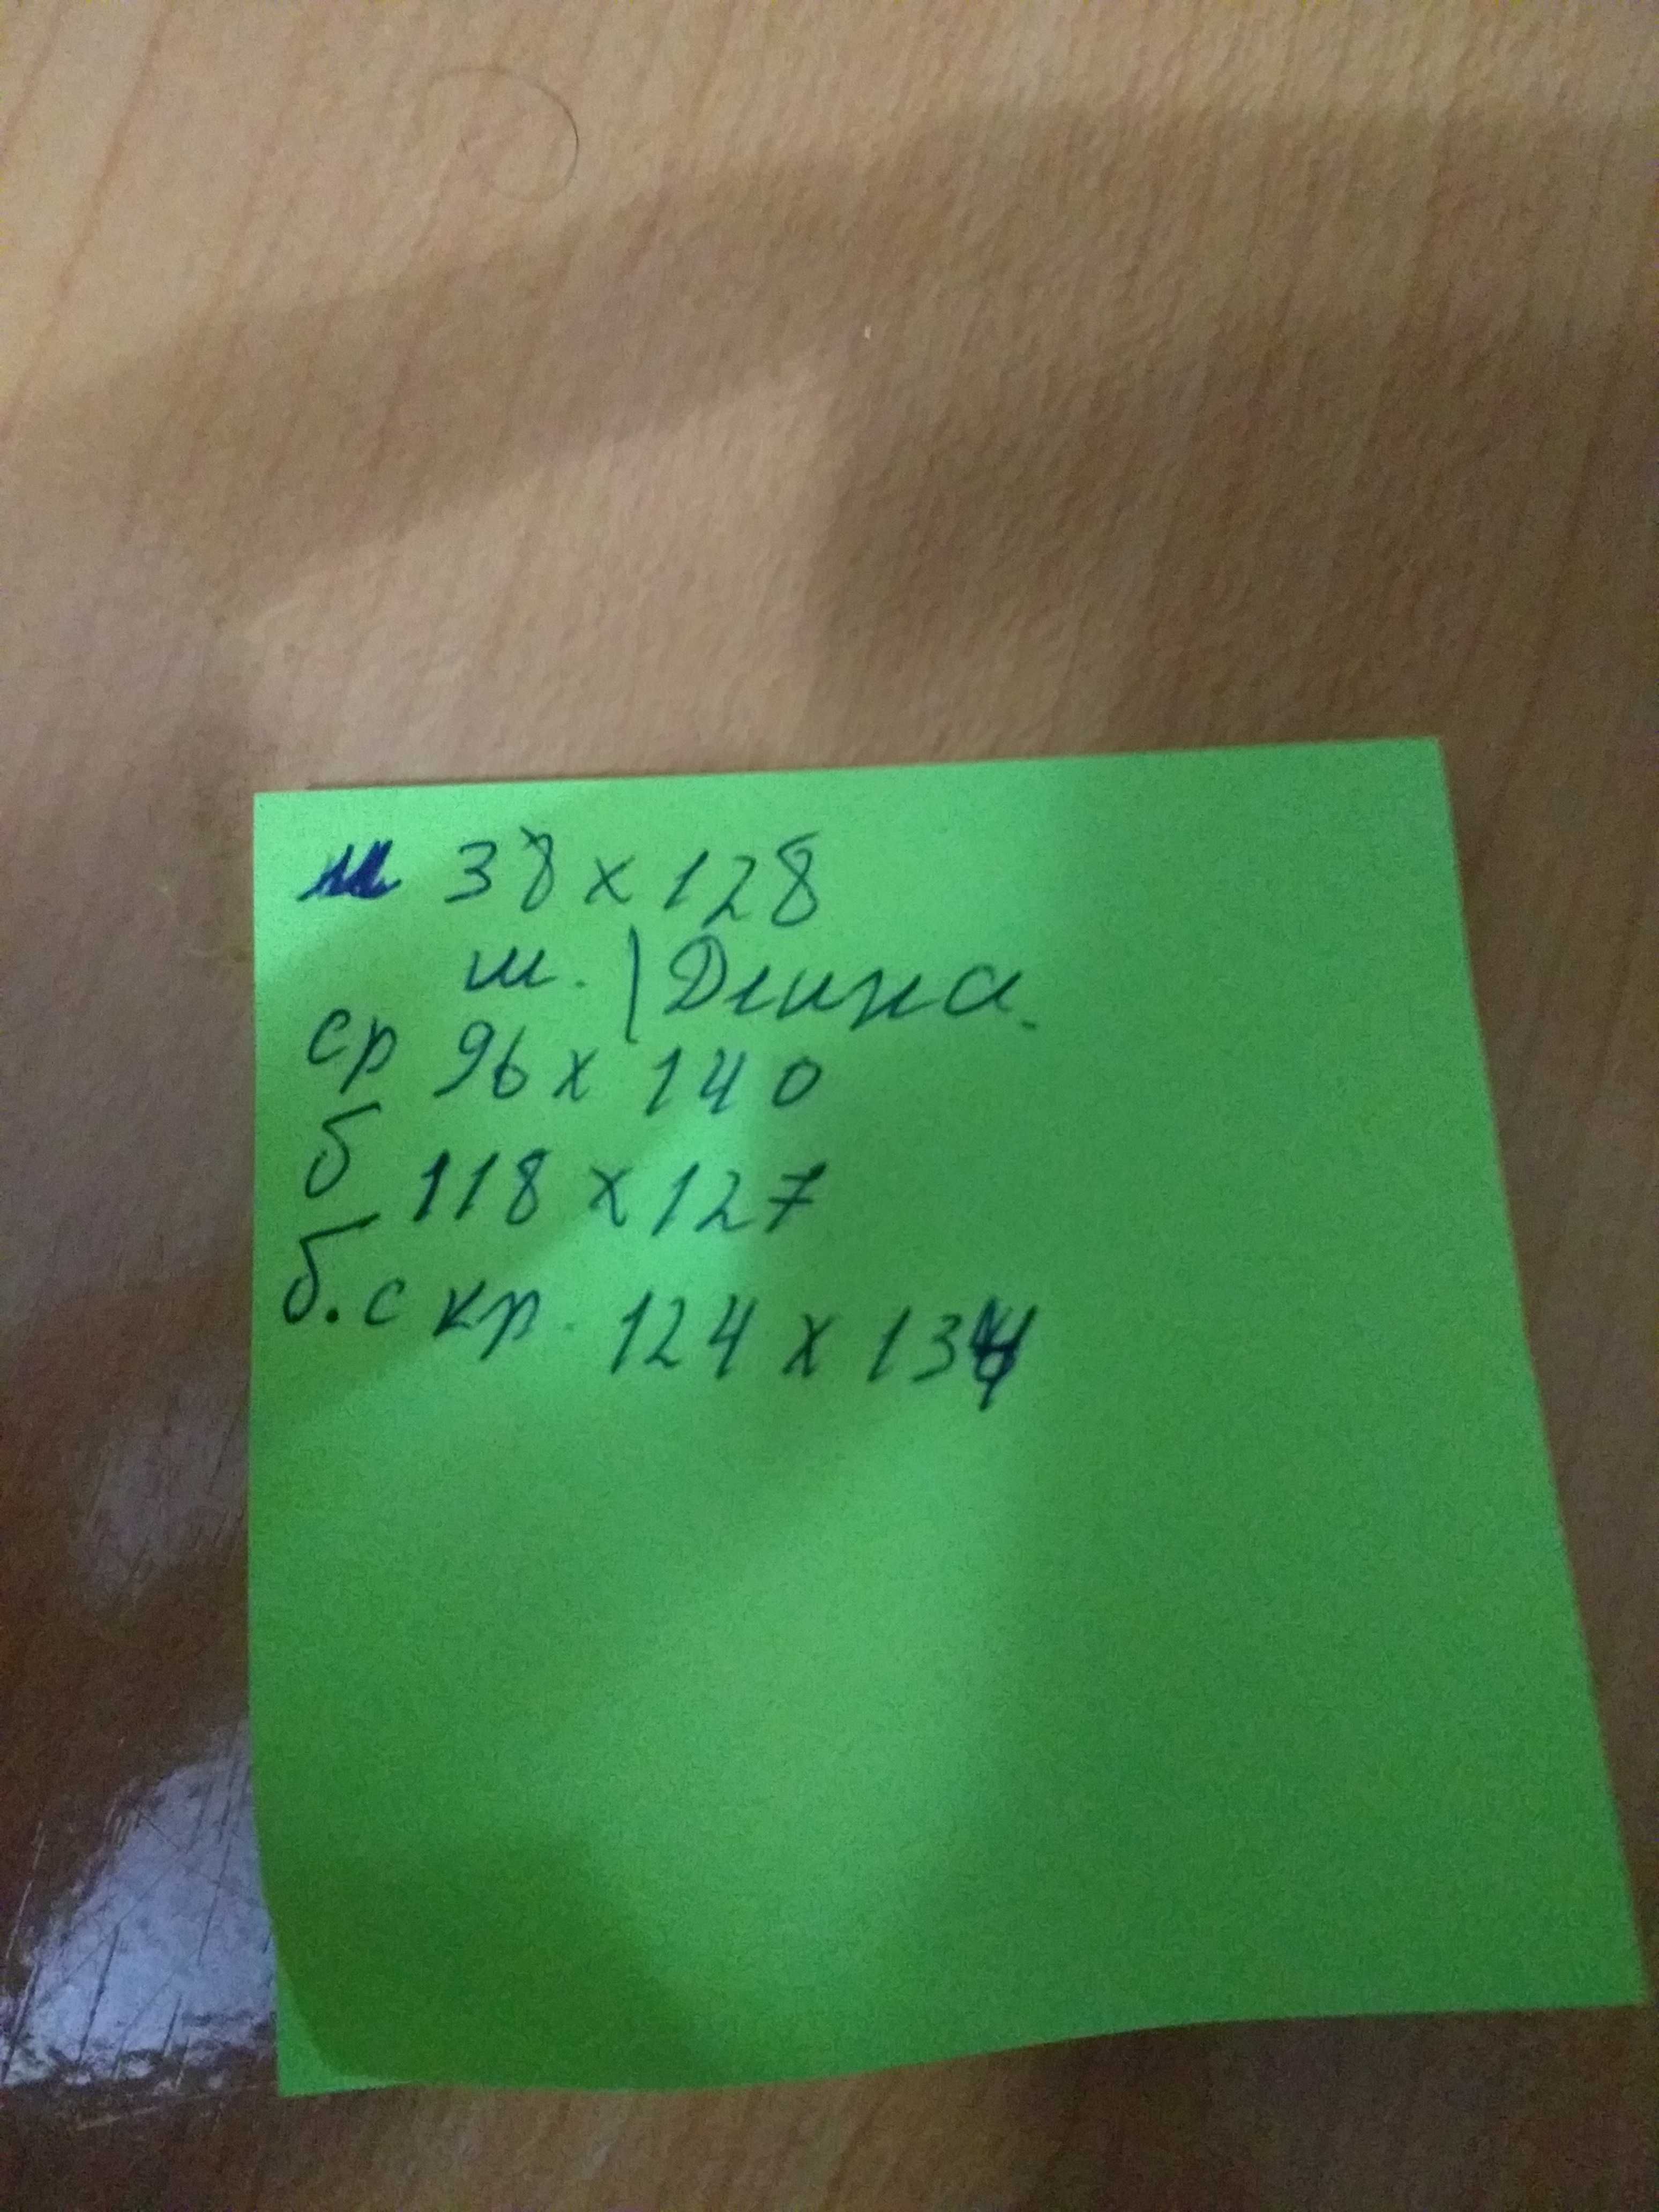 м 38 х 128
ш. | Длина.
ср 96 х 140
б 118 х 127
б. с кр. 124 х 134